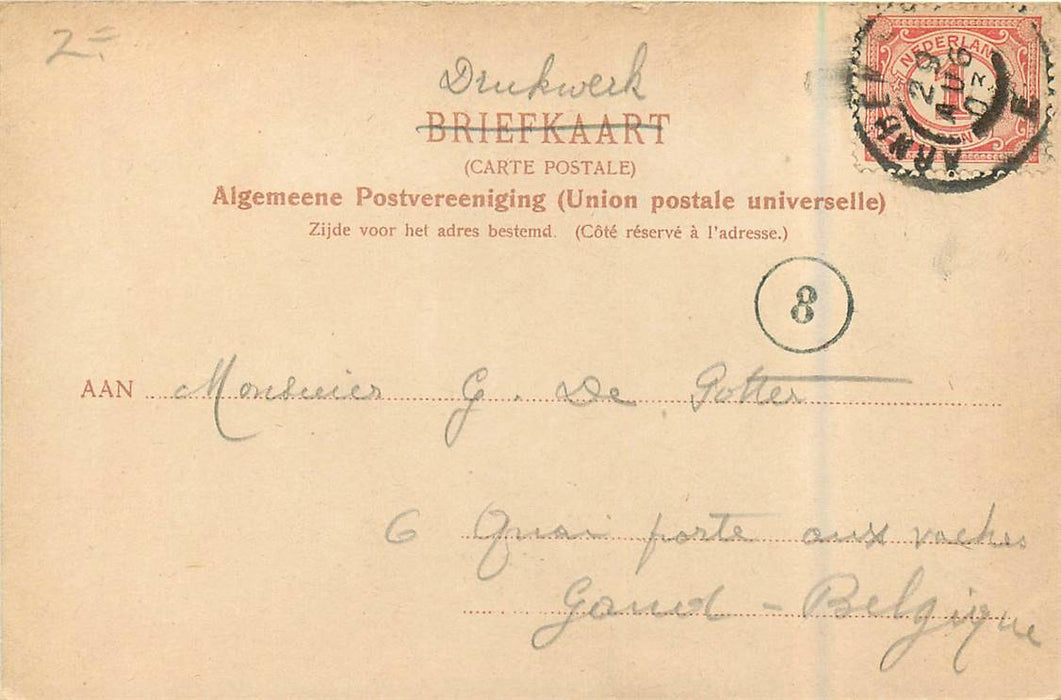 2=
Drukwerk
BRIEFKAART
(CARTE POSTALE)
Algemeene Postvereeniging (Union postale universelle)
Zijde voor het adres bestemd. (Côté réservé à l'adresse.)
NEDERLAND
1
ARNHEM
29
AUG
03
E
8
AAN Monsieur G. De Potter
6 Quai porte aux vaches
Gand - Belgique